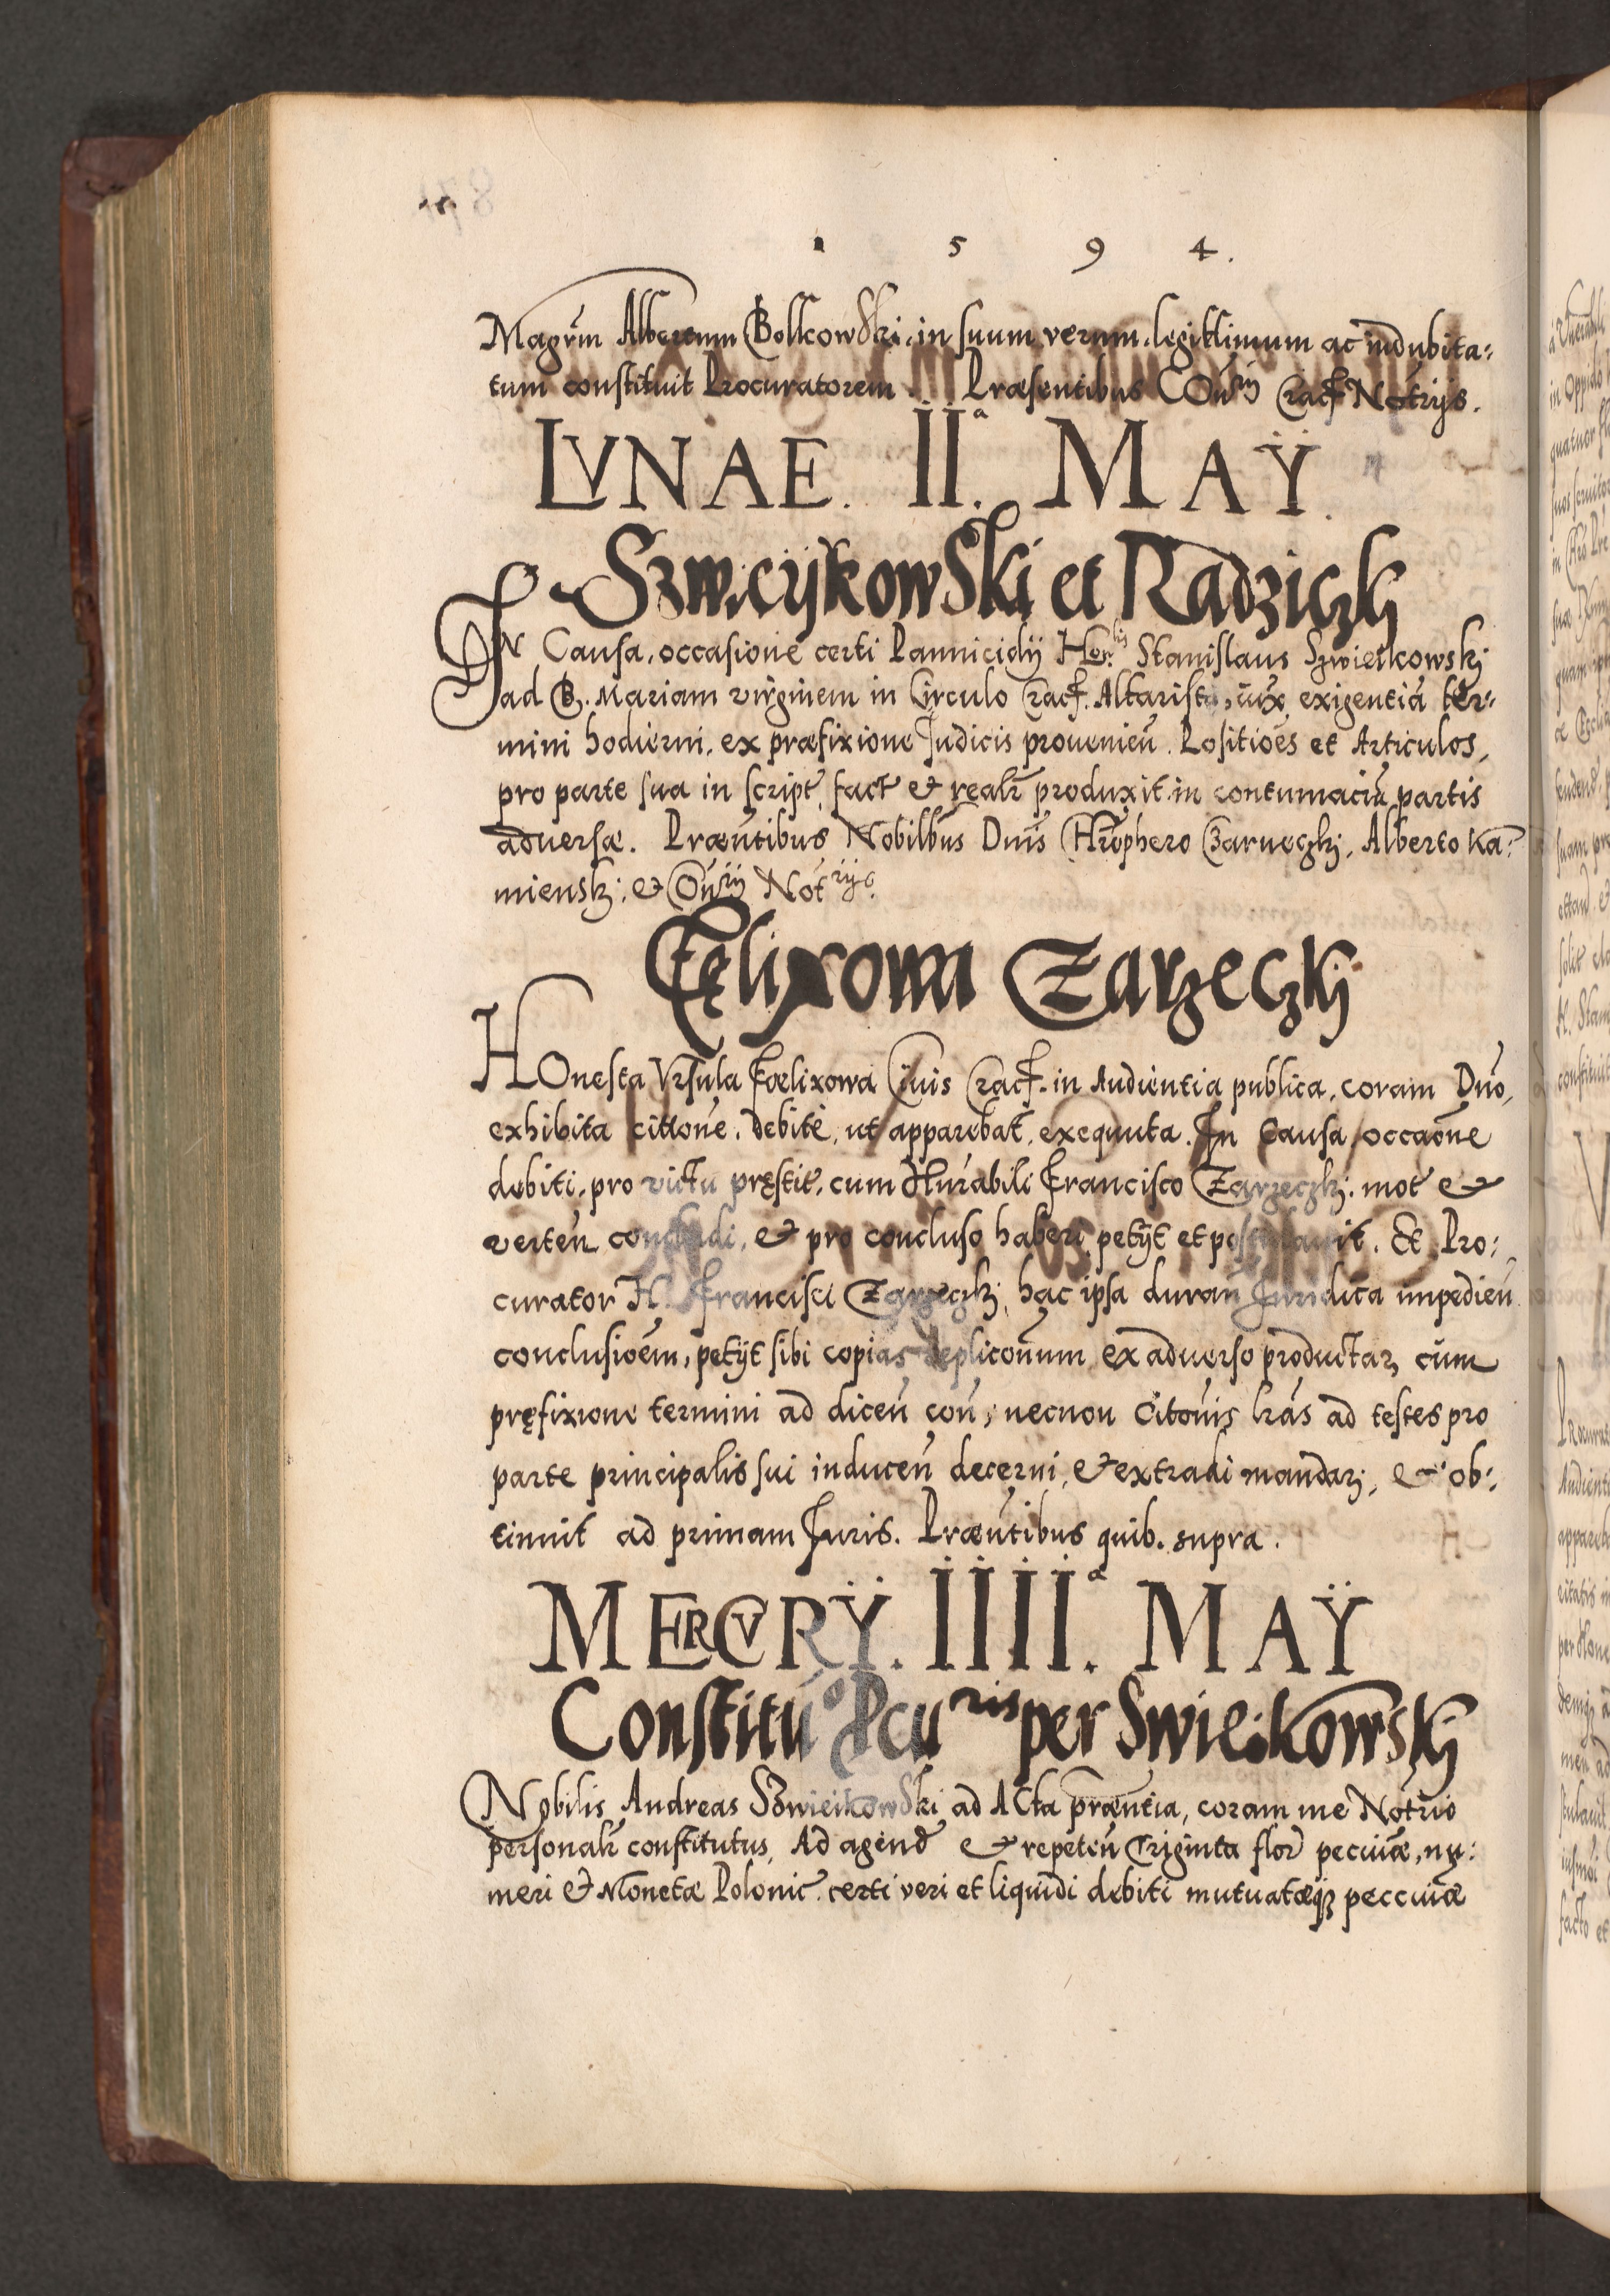 1 5 9 4.
Magr̃m Albertum Bolkowski, in suum verum, legittimum ac indubita:
tum constituit Procuratorem. Præsentibus COñsrij Cracꝭ Notrijs.
LVNAE. II.ª MAŸ.
Szwieykowski et Radziczkj
IN Causa, occasione certi Pannicidij Honlis Stanislaus Szwieikowskj
ad B. Mariam virginem in Circulo Cracꝭ. Altarista, iux exigentiã ter:
mini hodierni, ex præfixione Judicis prouenieñ. Positiões et Articulos,
pro parte sua in script, fact et realr̃ produxit, in contumaciã partis
aduersæ. Præñtibus Nobilbus Dnis Chr̃ophero Czarneczkj, Alberto Ka:
mienskj, et Coñsrij Notrijs.
Fęlixowa Zarzeczkj
HOnesta Vrsula Fœlixowa Ciuis Cracꝭ. in Audientia publica, coram Dño,
exhibita cittõne, debitè, ut apparebat, exequuta. In Causa, occaõne
debiti, pro victu pręstit, cum Hñrabili Francisco Zarzeczkj, mot et
verteñ concludi, et pro concluso haberi petijt et postulauit. Et Pro:
curator H. Francisci Zarzeczkj, hac ipsa durañ Juridica impedieñ
conclusioẽm, petijt sibi copias replicoñum ex aduerso productar, cũm
pręfixione termini ad diceñ coñ, necnon Citoñis lrãs ad testes pro
parte principalis sui induceñ decerni, et extradi mandarj, et ob:
tinuit ad primam Juris. Præñtibus quib. supra.
MERCVRŸ. IIII.ª MAŸ
Constituº Pcuris per Swieikowskj
Nobilis Andreas Szwieikowski ad ACta præñtia, coram me Notrio
personalr̃ constitutus, Ad agend et repeteñ triginta flor pecuiæ, nu:
meri et Monetæ Polonic. certi veri et liquidi debiti mutuatæq̃ peccuiæ